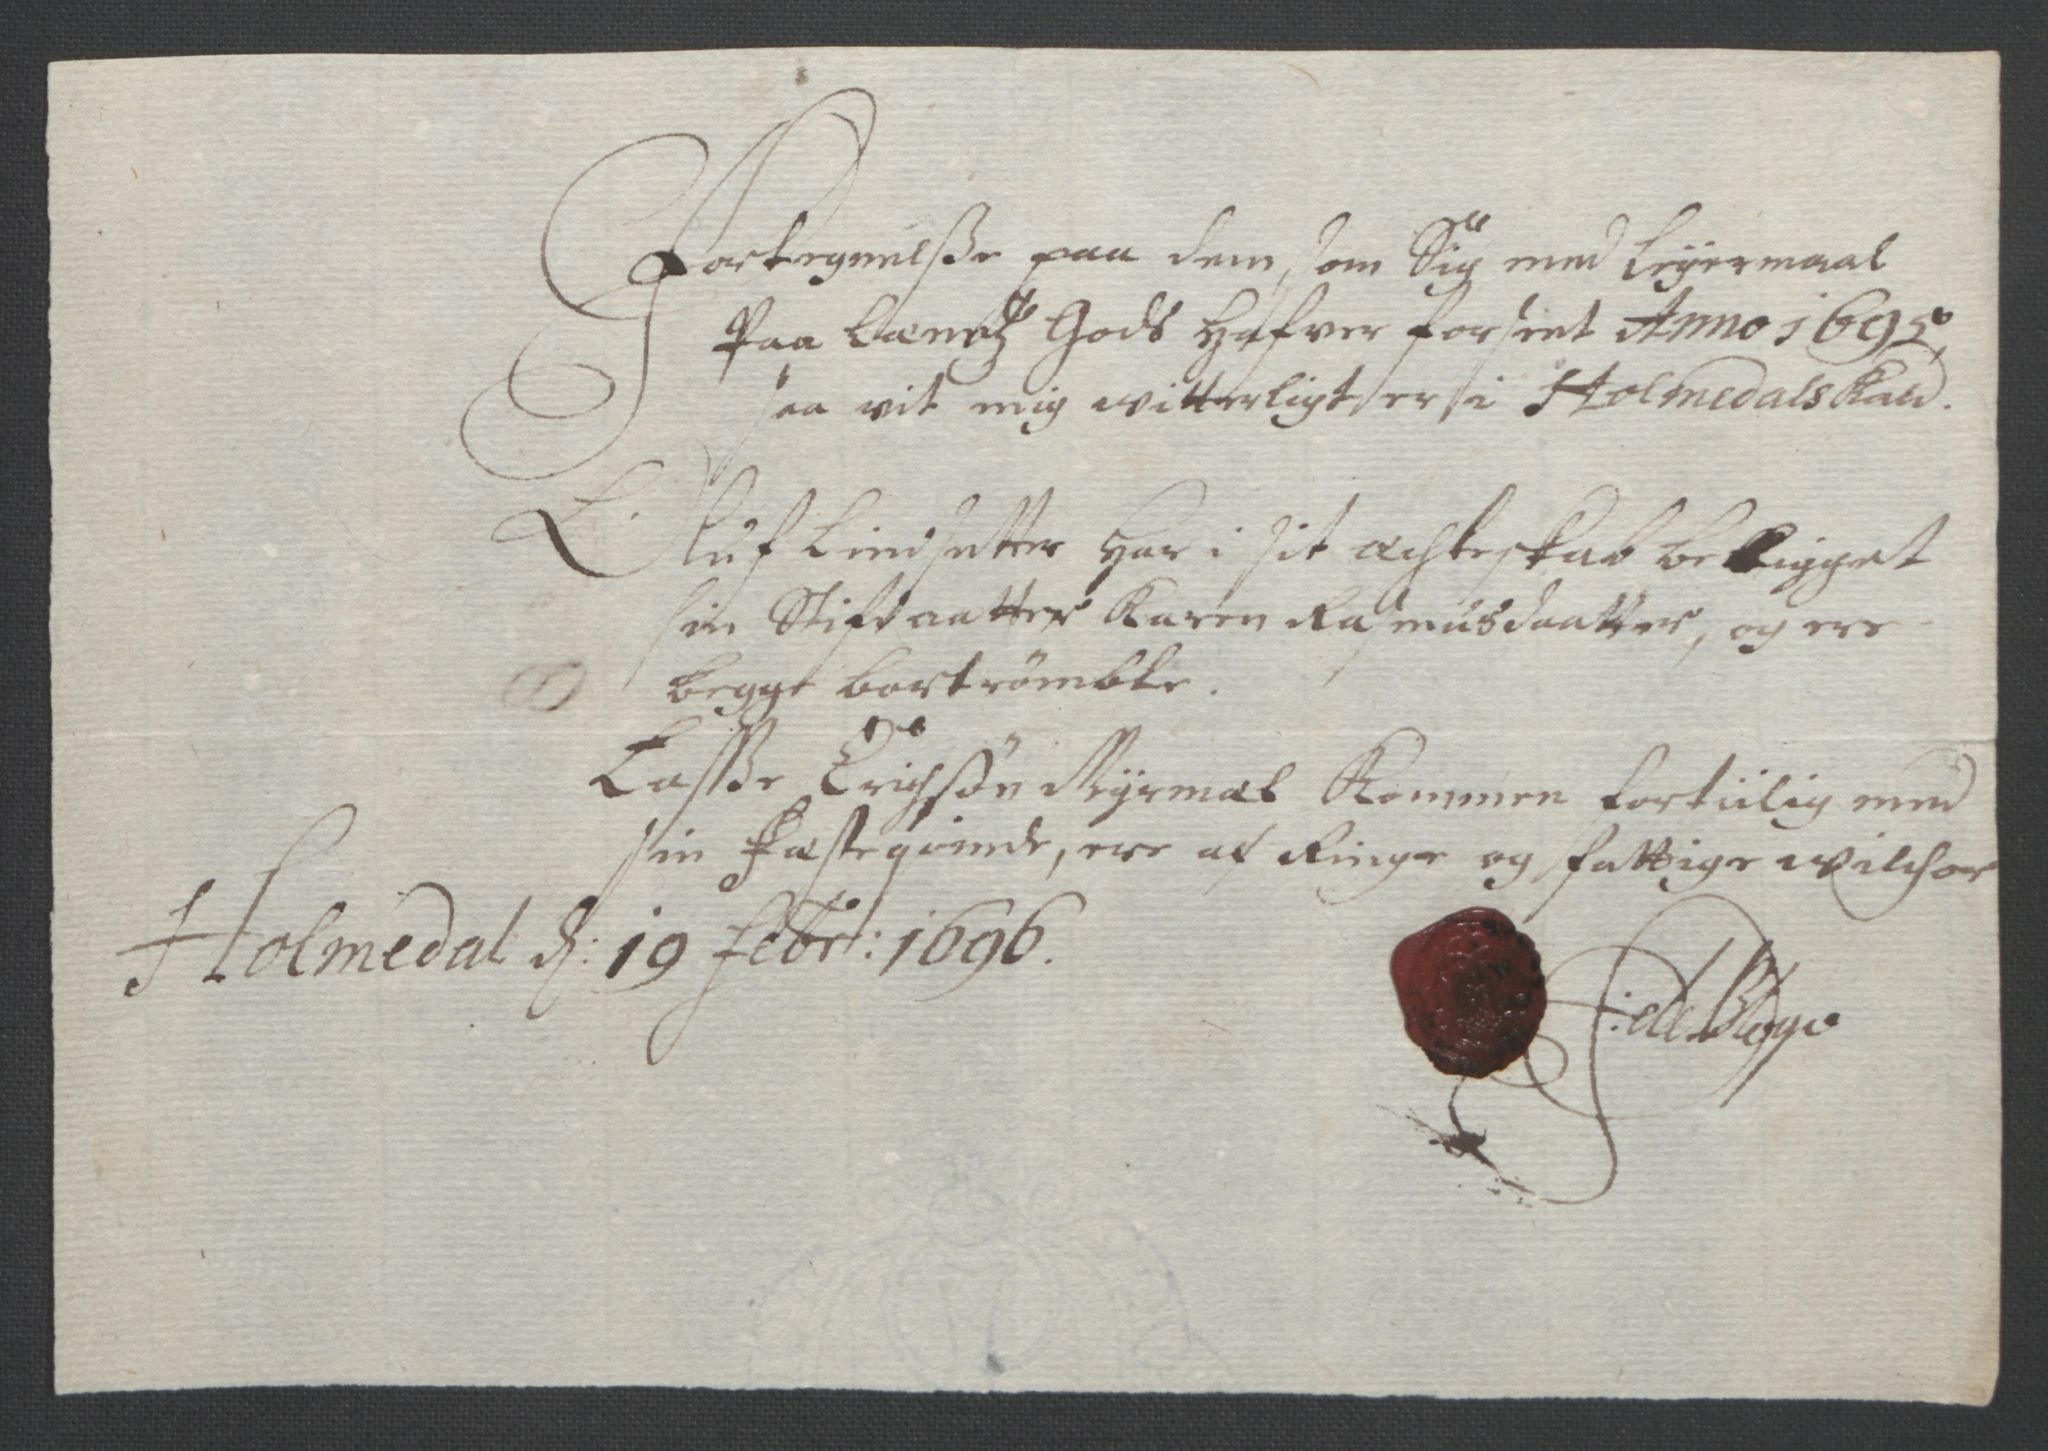 Fortegnelsse paa dem, som Sig med Leyermaal
Paa Lænetz Gods Hafver forseet Anno 1695,
saa vit mig witterligt er i Holmedals
Oluf Lindsetter Har i sit achteskab beligget
sin Stifdaatter Karen Rasmusdaatter, og ere
begge bortrömbte.
Lasse Erichsön Myrmæl Kommen fortiilig med
sin Fæsteqvinde, ere af Ringe og fattige wilchor
Holmedal d: 19 Febr: 1696.